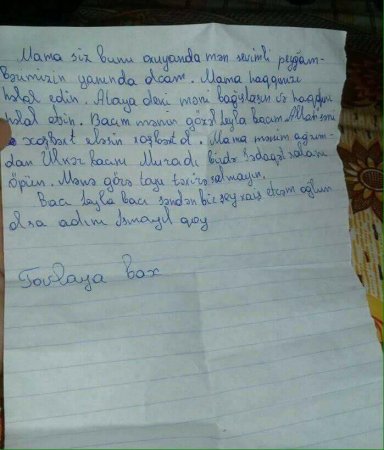 Mama siz bunu oxuyanda mən sevimli peyğəm-
bərimizin yanında olcam. Mama haqqınızı
halal edin. Ataya deki məni bağışlasın və haqqını
halal etsin. Bacım mənim gözəl Leyla bacım Allah səni
xoşbəxt eləsin xoşbəxt ol. Mama mənim ağzım-
dan Ülkər bacını Muradı birdə Sədaqət xalanı
öpün. Mənə görə taqı təxirə salmayın.
Bacı Leyla bacı səndən bir şey xaiş etcəm oğlun
olsa adını İsmayıl qoy
Tovlaya bax